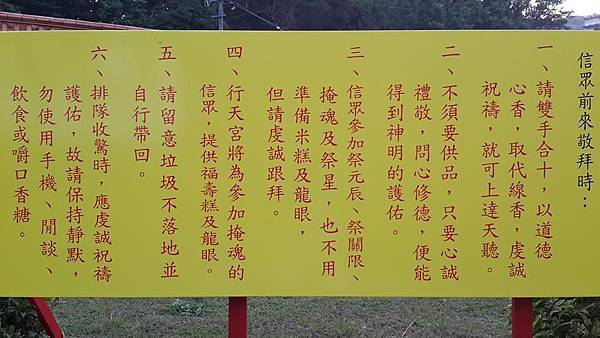 信眾前來敬拜時：
一、請雙手合十，以道德
心香，取代線香，虔誠
祝禱，就可上達天聽。
二、不須要供品，只要心誠
禮敬，問心修德，便能
得到神明的護佑。
三、信眾參加祭元辰、祭關限、
掩魂及祭星，也不用
準備米糕及龍眼，
但請虔誠跟拜。
四、行天宮將為參加掩魂的
信眾，提供福壽糕及龍眼。
五、請留意垃圾不落地並
自行帶回。
六、排隊收驚時，應虔誠祝禱
護佑，故請保持靜默，
勿使用手機、閒談、
飲食或嚼口香糖。